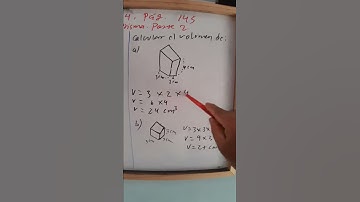 4. Pág. 145
Prisma Parte 2
Calcular el volumen de:
a)
4cm
3cm
2cm
V = 3 x 2 x 4
V = 6 x 4
V = 24 cm³
b)
3cm
3cm
V = 3x3x
V = 9x
V = 27 cm